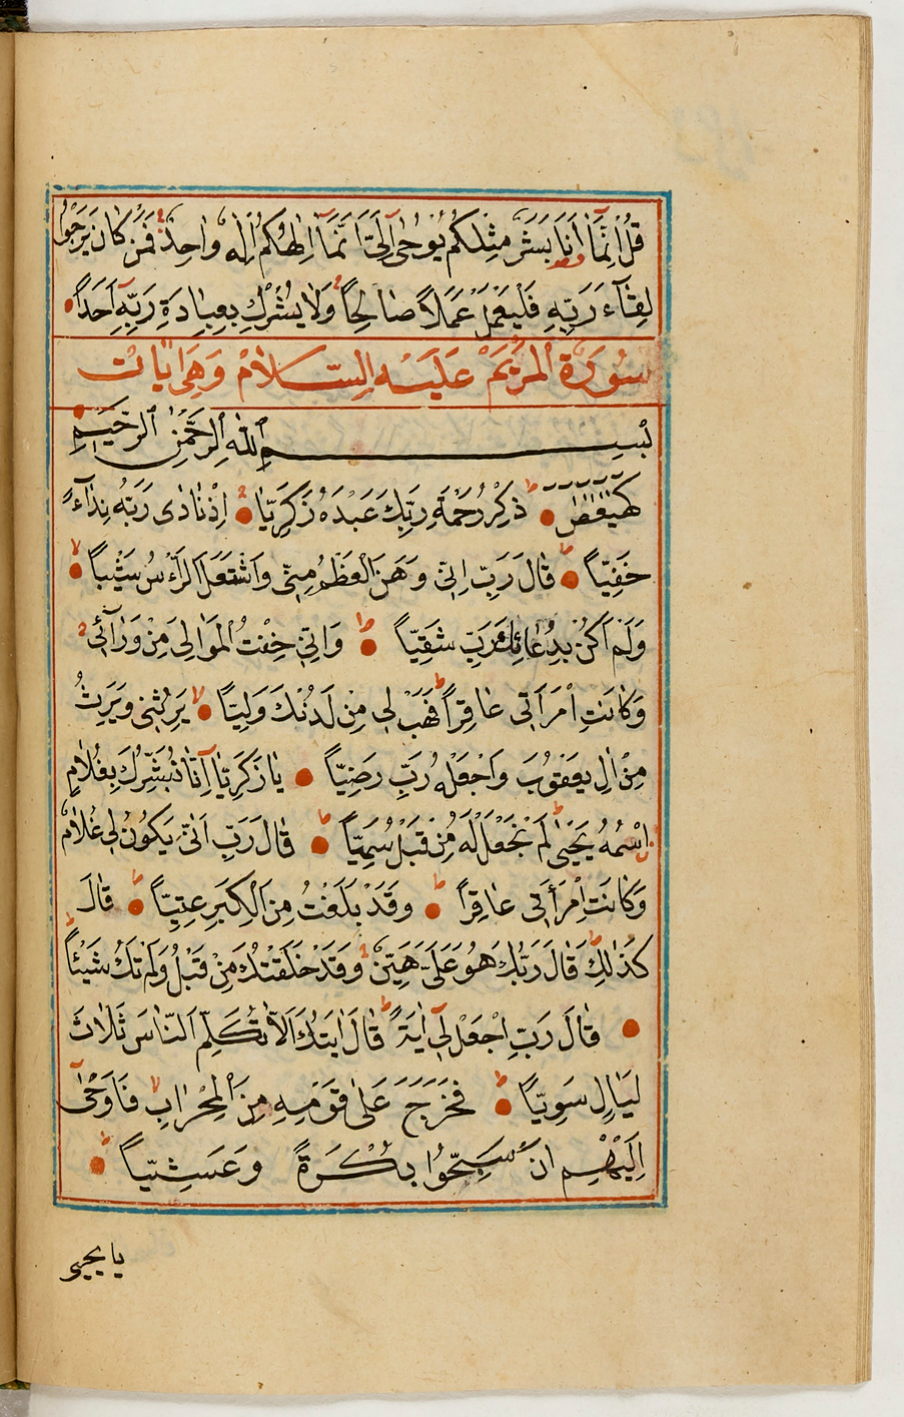 قُلْ اِنَّمَٓا اَنَا۬ بَشَرٌ مِثْلُكُمْ يُوحٰٓى اِلَىَّ اَنَّمَٓا اِلٰهُكُمْ اِلٰهٌ وٰاحِدٌ فَمَنْ كٰانَ يَرْجُوا
لِقٰٓاءَ رَبِّهٖ فَلْيَعْمَلْ عَمَلاً صٰالِحاً وَلٰا يُشْرِكْ بِعِبٰادَةِ رَبِّهٖٓ اَحَداً
سُورَةُ الْمَرْيَمْ عَلَيْهِ السَّلاٰمْ وَهِىَ اٰيٰاتْ
بِسْمِ اللّٰهِ الرَّحْمٰنِ الرَّحٖيمِ
كٓهٰيٰعٓصٓ ذِكْرُ رَحْمَةِ رَبِّكَ عَبْدَهُ زَكَرِيّٰا اِذْ نٰادٰى رَبَّهُ نِدٰٓاءً
خَفِيّاً قٰالَ رَبِّ اِنّٖى وَهَنَ الْعَظْمُ مِنّٖى وَاشْتَعَلَ الرَّأْسُ شَيْباً
وَلَمْ اَكُنْ بِدُعٰائِكَ رَبِّ شَقِيّاً وَاِنّٖى خِفْتُ الْمَوٰالِىَ مِنْ وَرٰٓائٖى
وَكٰانَتِ امْرَاَتٖى عٰاقِراً فَهَبْ لٖى مِنْ لَدُنْكَ وَلِيّاً يَرِثُنٖى وَيَرِثُ
مِنْ اٰلِ يَعْقُوبَ وَاجْعَلْهُ رَبِّ رَضِيّاً يٰا زَكَرِيّٰٓا اِنّٰا نُبَشِّرُكَ بِغُلٰامٍ
اِسْمُهُ يَحْيٰى لَمْ نَجْعَلْ لَهُ مِنْ قَبْلُ سَمِيّاً قٰالَ رَبِّ اَنّٰى يَكُونُ لٖى غُلٰامٌ
وَكٰانَتِ امْرَأَتٖى عٰاقِراً وَقَدْ بَلَغْتُ مِنَ الْكِبَرِ عِتِيّاً قٰالَ
كَذٰلِكَ قٰالَ رَبُّكَ هُوَ عَلَىَّ هَيِّنٌ وَقَدْ خَلَقْتُكَ مِنْ قَبْلُ وَلَمْ تَكُ شَيْئاً
قٰالَ رَبِّ اجْعَلْ لٖٓى اٰيَةً قٰالَ اٰيَتُكَ اَلّاٰ تُكَلِّمَ النّٰاسَ ثَلٰاثَ
لَيٰالٍ سَوِيّاً فَخَرَجَ عَلٰى قَوْمِهٖ مِنَ الْمِحْرٰابِ فَاَوْحٰٓى
اِلَيْهِمْ اَنْ سَبِّحُوا بُكْرَةً وَعَشِيّاً
يا يحيى